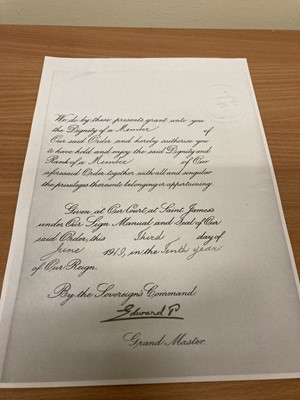 We do by these presents grant unto you
the Dignity of a Member of
Our said Order and hereby authorise you
to have hold and enjoy the said Dignity and
Rank of a Member of Our
aforesaid Order, together with all and singular
the privileges thereunto belonging or appertaining.
Given at Our Court at Saint James's
under Our Sign Manual and Seal of Our
said Order, this Third day of
June 1919, in the Tenth year
of Our Reign.
By the Sovereign's Command.
Edward P
Grand Master.